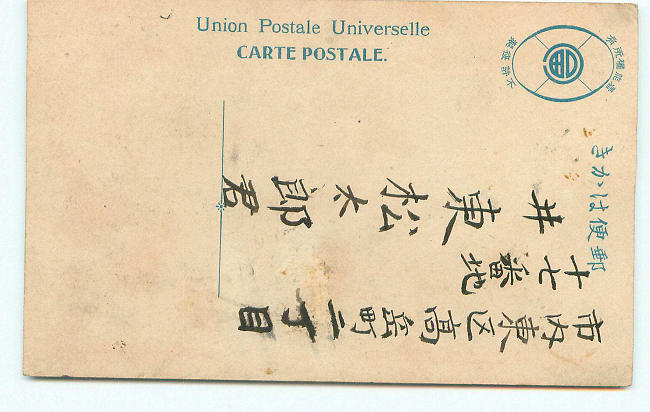 Union Postale Universelle
CARTE POSTALE.
郵便はかき
市内東区高岳町二丁目
十七番地
井東松太郎君